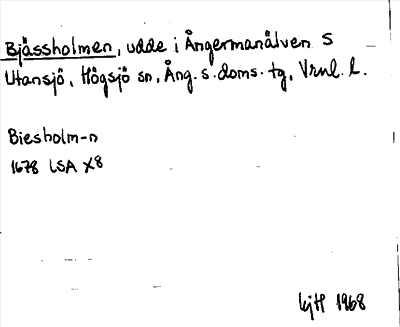 Bjässholmen, udde i Ångermanälven S
Utansjö, Högsjö sn, Ång. s. doms. tg, Vrnl. l.
Biesholm-n
1678 LSA X8
kjH 1968